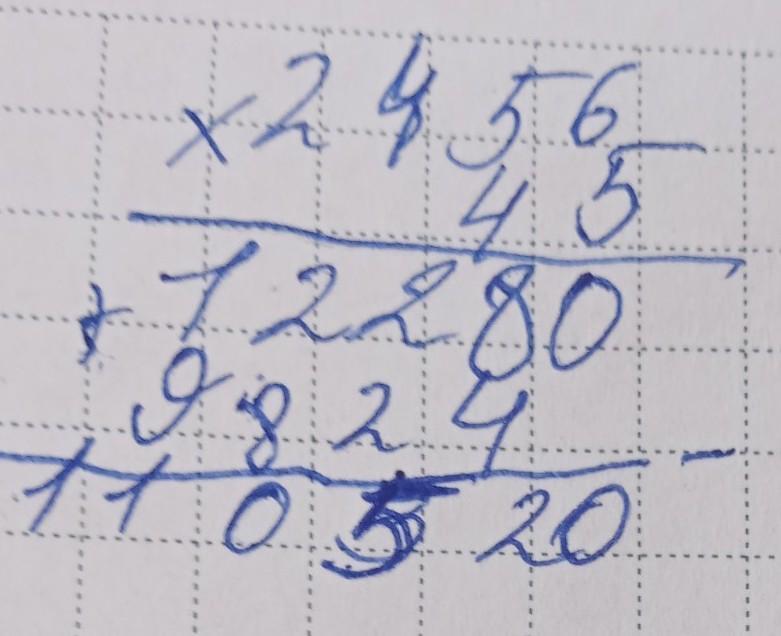 ×2456
45
+12280
9824
110520